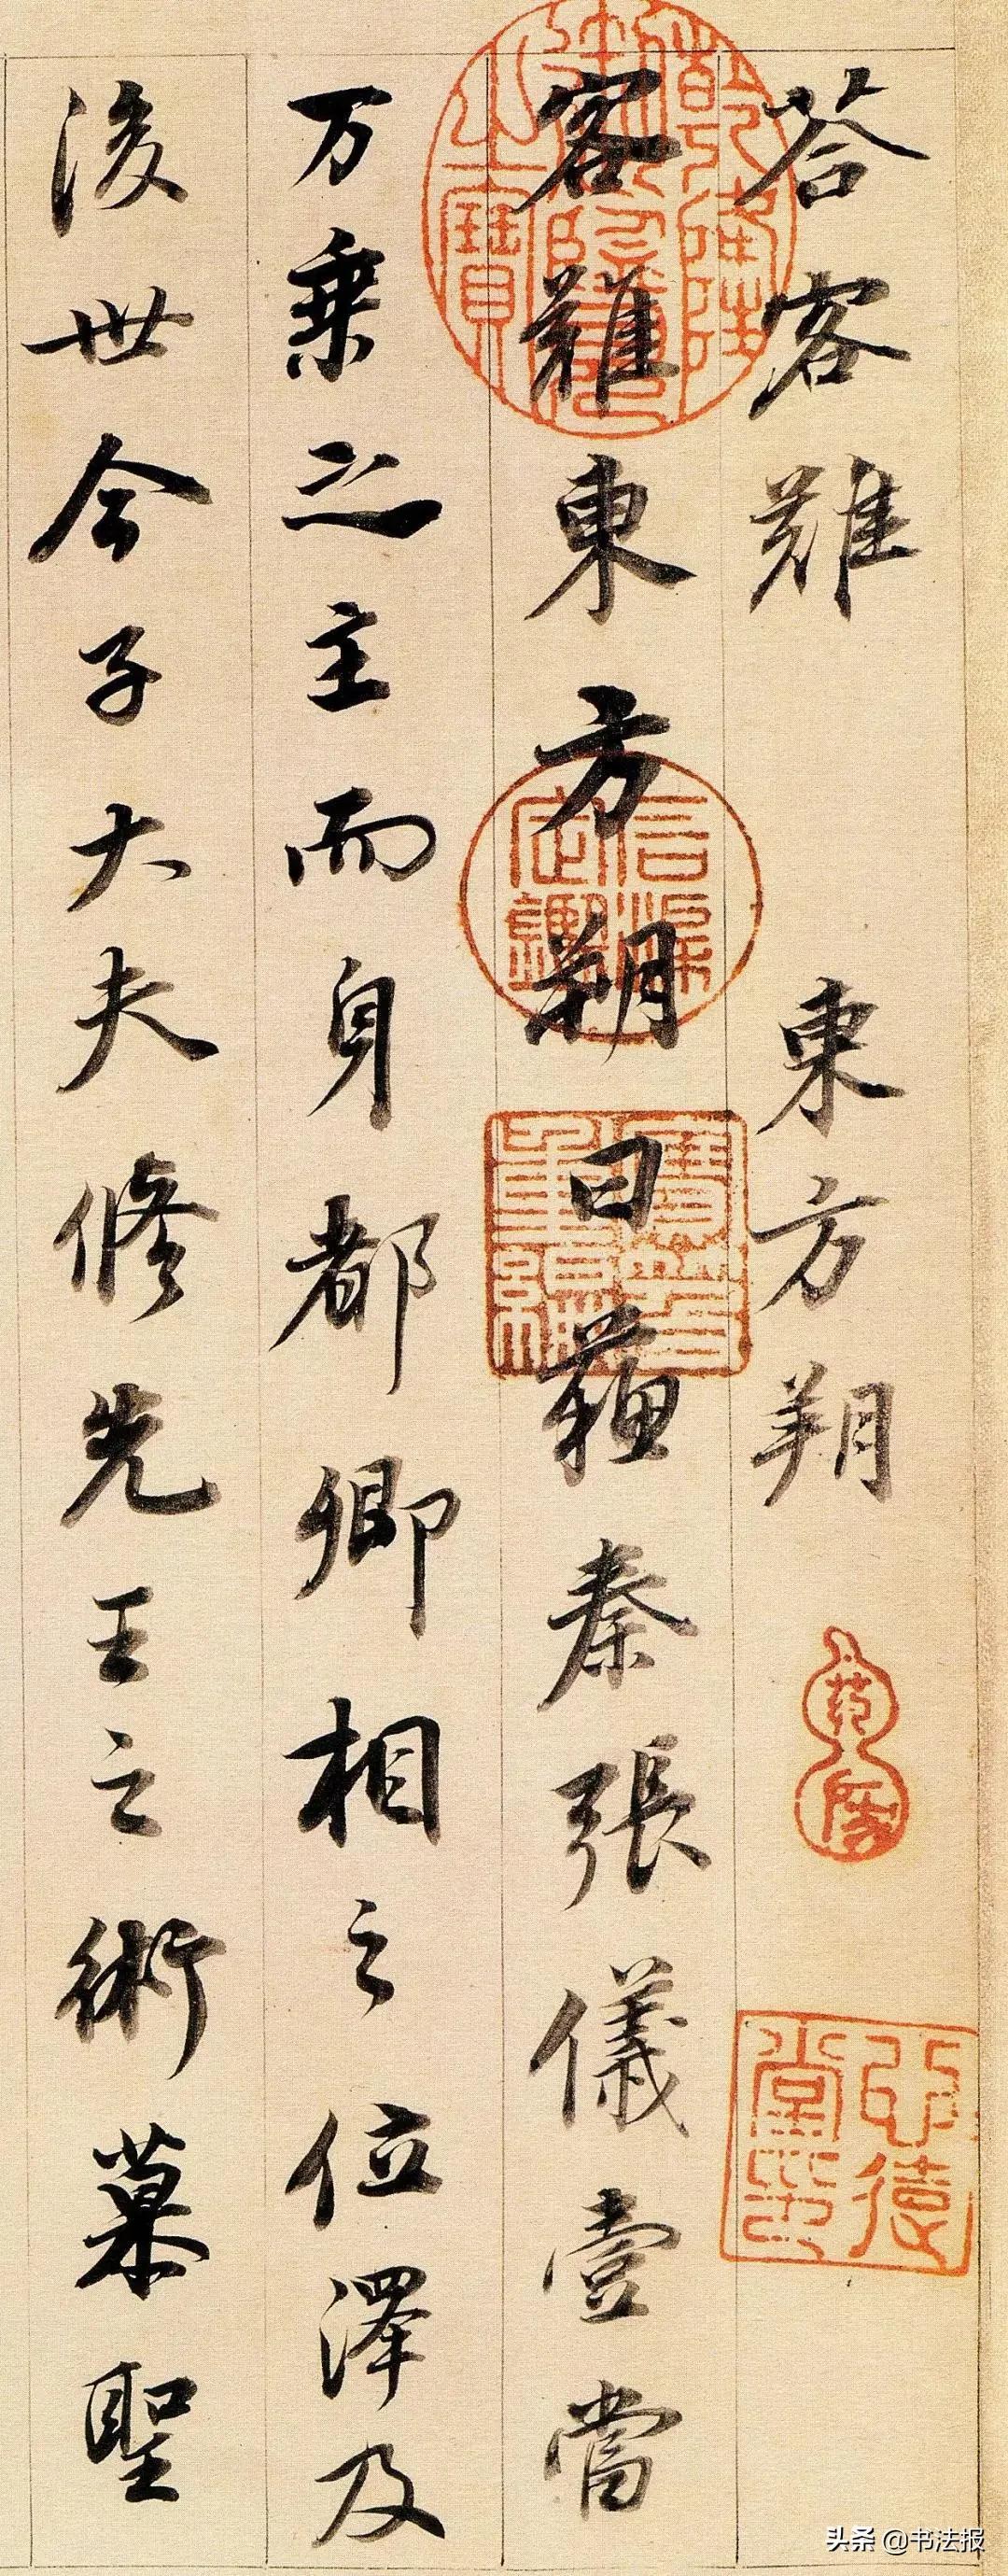 荅客難 東方朔
客難東方朔曰蘓秦張儀壹當
万乘之主而身都卿相之位澤及
後世今子大夫修先王之術慕聖
寶笈重編
头条 @书法报